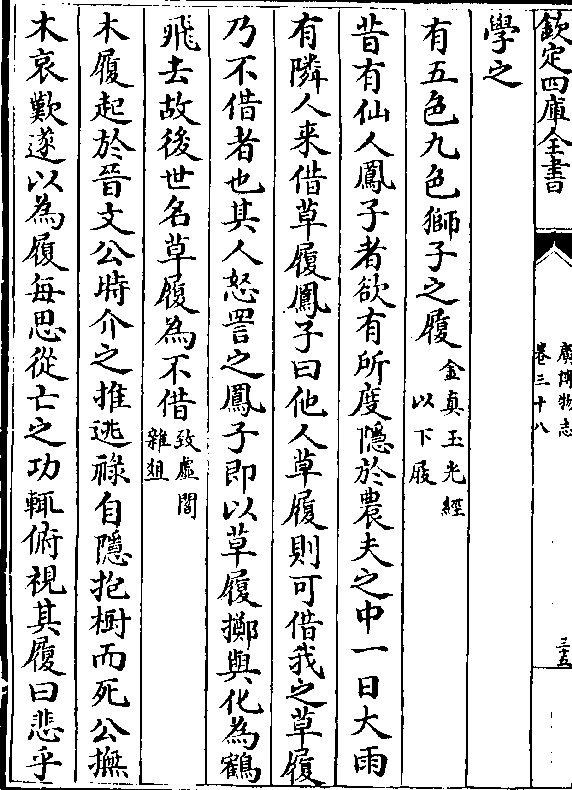 欽定四庫全書
廣博物志
卷三十八
三五
學之
有五色九色獅子之履金真玉光經以下履
昔有仙人鳳子者欲有所度隱於農夫之中一日大雨
有隣人来借草履鳳子曰他人草履則可借我之草履
乃不借者也其人怒詈之鳳子即以草履擲與化為鶴
飛去故後世名草履為不借致虚閣雜俎
木履起於晉文公時介之推逃禄自隱抱樹而死公撫
木哀歎遂以為履每思從亡之功輒俯視其履曰悲乎